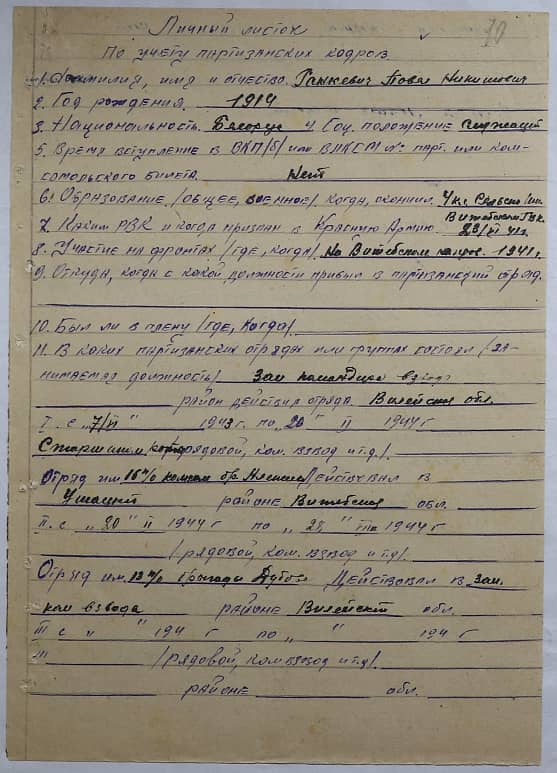 70
Личный листок
По учету партизанских кадров
1. Фамилия, имя и отчество. Павел
2. Год рождения. 1914
3. Национальность Белорус 4. Соц. положение служащий
5. Время вступление в ВКП/б/ или ВЛКСМ №: парт. или ком-
сомольского билета. Нет
6. Образование /общее, военное/ когда окончил. 4 кл. Сельск
7. Каким РВК и когда призван в Красную Армию Витебским РВК 23/VI 41 г.
8. Участие на фронтах /где, когда/ На Витебском напров. 1941 г.
9. Откуда, когда с какой должности прибыл в партизанский отряд.
10. Был ли в плену /где, когда/
11. В каких партизанских отрядах или группах состоял /за-
нимаемая должность/ Зам командира взвода
район действия отряда Вилейская обл.
I. с „7/VI" 1943 г. по „20" II 1944 г
Старшиной рядовой, ком. взвод и т.д./
Отряд им. 16 комсом бр. Действовал в
Ушацком районе Витебская обл.
II. с „20" II 1944 г по „25" 1944 г
/рядовой, ком. взвод и т.д/
Отряд им. 13 бригади Действовал в Зам.
ком взвода районе Вилейской обл.
III с „ " 194 г по „ " 194 г
III /рядовой, ком взвод и т.д/.
районе обл.